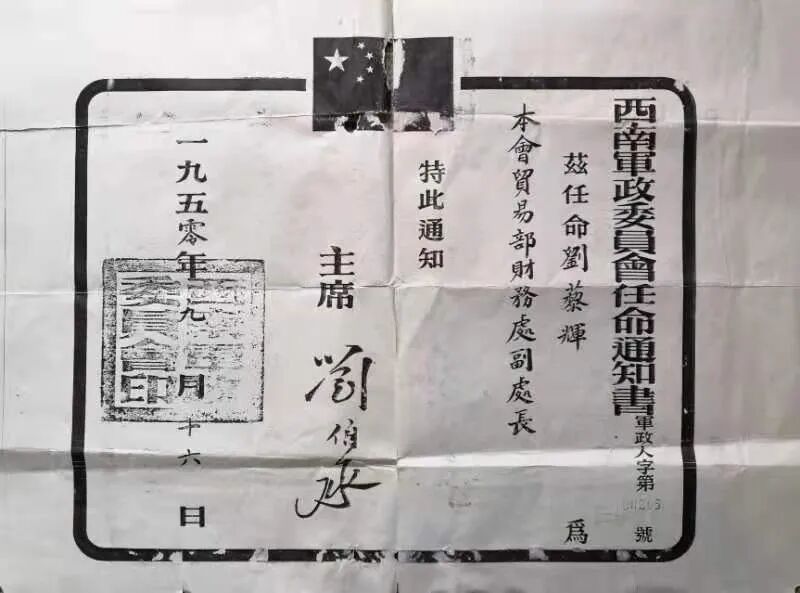 西南軍政委員會任命通知書
軍政人字第 號
茲任命劉藜輝 爲
本會貿易部財務處副處長
特此通知
主席 劉伯承
一九五零年九月十六日
西南軍政
委員會印